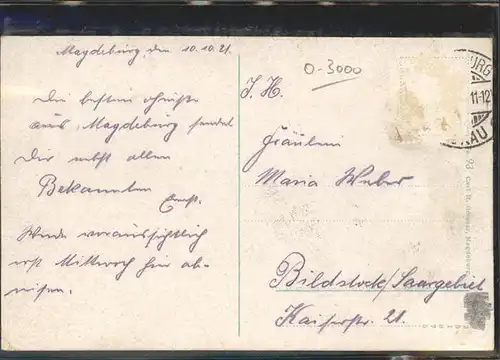 Magdeburg, den 10.10.21.
Die besten Grüße
aus Magdeburg sendet
Dir nebst allen
Bekannten
Ernst.
Werde voraussichtlich
erst Mittwoch hier ab-
reisen.
O-3000
I. H.
Fräulein
Maria Weber
Bildstock/Saargebiet
Kaiserstr. 21.
BURG
11-12
KAU
93 Carl Magdeburg